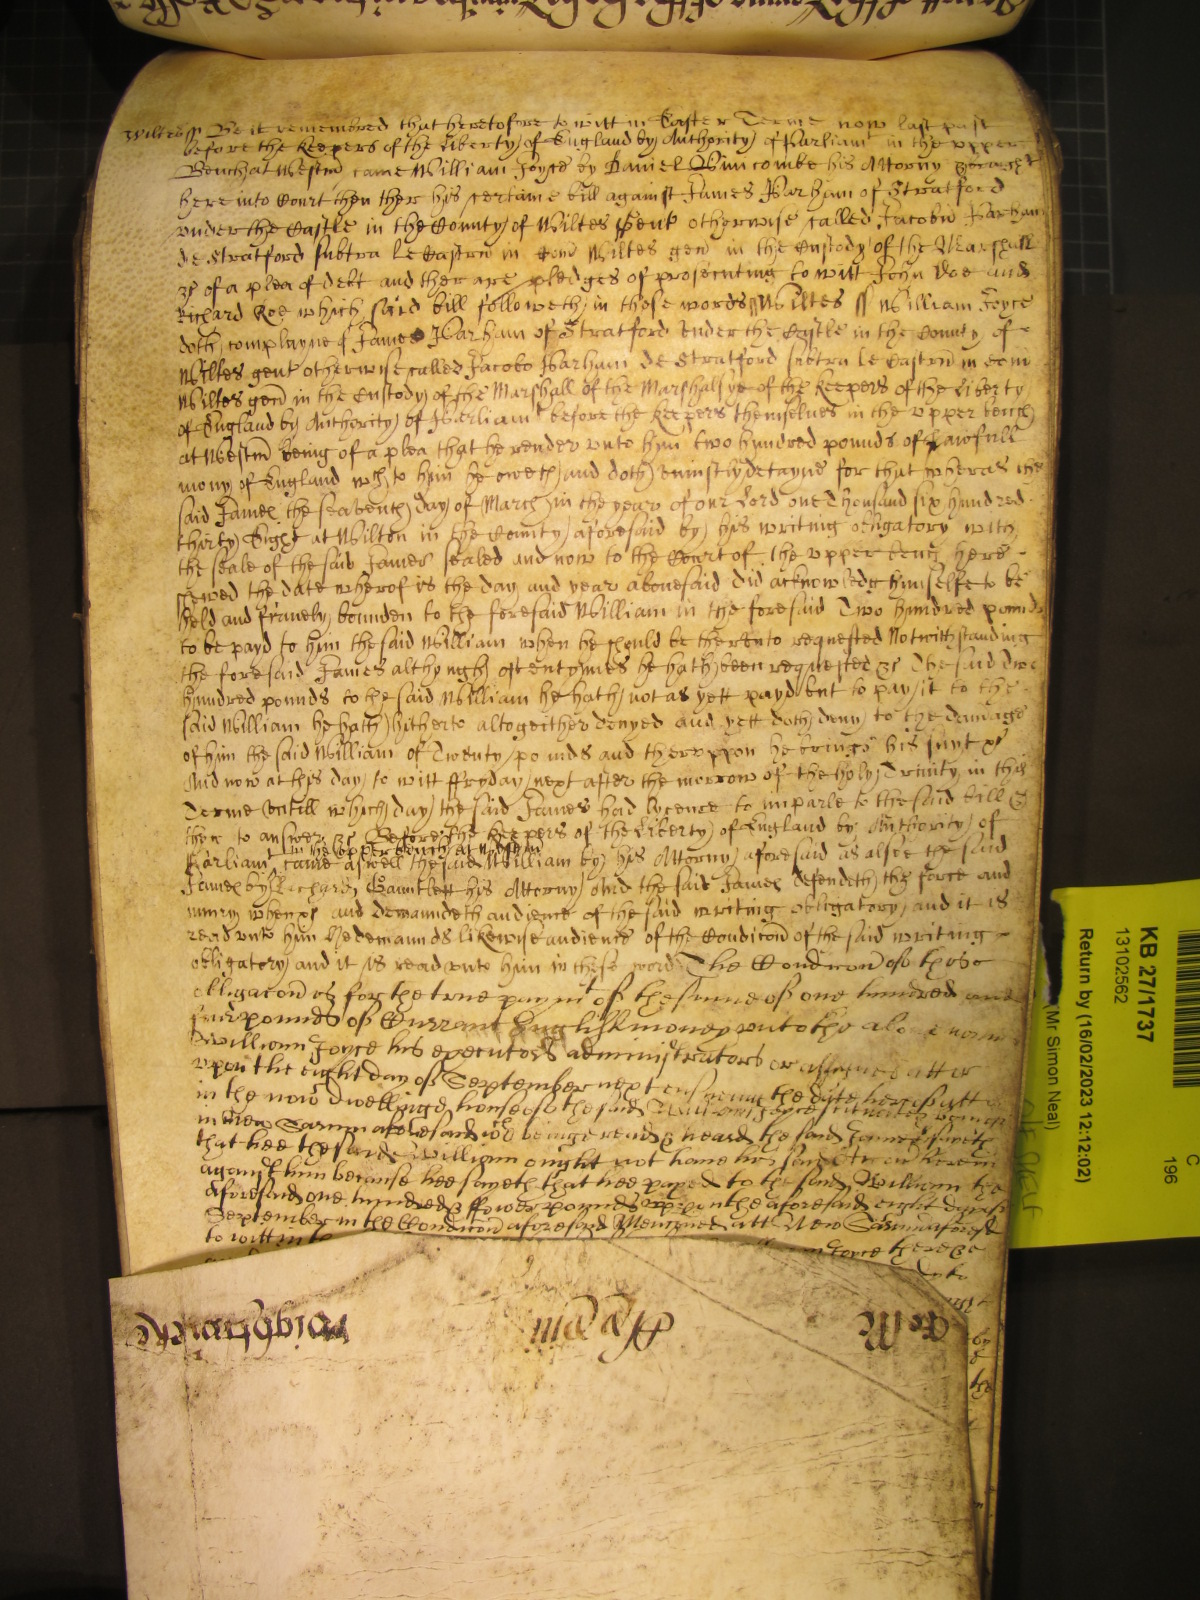 Wiltes ss Be it remembred that heretofore to witt in Easter Terme now last past
before the Keepers of the Liberty of England by Authority of Parliamt in the upper
Bench at Westm came William Joyce by Daniel his Attorny brought
here into Court then ther his certaine bill against James Barham of Stratford
under the Castle in the County of Wiltes gent otherwise called Jacobu Barham
de Stratford subtra le Castrm in Com Wiltes gen in the Custody of the Marshall
&c of a plea of debt and ther are pledges of prosecuting to witt John Doe and
Richard Roe which said bill followeth in these words Wiltes ss William Joyce
doth complayne of James Barham of Stratford under the Castle in the County of
Wiltes gent otherwise called Jacobo Barham de Stratford subtra le Castrm in Com
Wiltes gen in the Custody of the Marshall of the Marshalsye of the Keepers of the Liberty
of England by Authority of Parliamt before the Keepers themselves in the upper bench
at Westm being of a plea that he render unto him two hundred pounds of Lawfull
mony of England wch to him he oweth and doth uniustly detayne for that wheras the
said James the seaventh day of March in the year of our Lord one Thousand six hundred
thirty Eight at Wilton in the County aforesaid by his writing obligatory with
the seale of the said James sealed and now to the Court of the upper bench here
shewed the date wherof is the day and year abovesaid did acknowledg himselfe to be
held and firmely bounden to the foresaid William in the foresaid Two hundred pounds
to be payd to him the said William when he should be therunto requested Notwithstanding
the foresaid James although oftentymes he hath been requested &c The said two
hundred pounds to the said William he hath not as yett payd but to pay it to the
said William he hath hitherto altogeither denyed and yett doth deny to the damage
of him the said William of Twenty pounds and therupon he brings his suyt &c
And now at this day to witt ffryday next after the morrow of the holy Trinity in this
Terme Untill which day the said James had lycence to imparle to the said bill &
then to answer &c Before the Keepers of the Liberty of England by Authority of
Parliamt in the upper bench at Westm came aswell the said William by his Attorny aforesaid as alsoe the said
James by Richard Gauntlett his Attorny And the said James defendeth the force and
iniury when &c and demaundeth audience of the said writing obligatory and it is
read unto him he demaunds likewise audience of the Condicon of the said writing
obligatory and it is read unto him in these words The Condicon of these
obligacon is for the true paymt of the sume of one hundred and
fower pounds of Currant English money unto the above
William Joyce his executors administrators or assignes att or
upon the eight day of September next ensueing the date hereof att
in the now dwellinge house of the said William Joyce
in New Sarum aforesaid wch beinge read & heard the said James saieth
that hee the said William ought not have his said Accon therein
against him because hee sayeth that hee payed to the said William the
aforesaid one hundred & fower pounds upon the aforesaid eight day of
September in the Condicon aforesaid Menconed att New Sarum aforesd
to witt
KB 27/1737
13102562
Return by (16/02/2023 12:12:02)
(Mr Simon Neal)
C
196